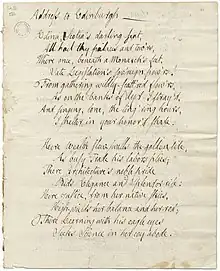 Address to Edinburgh
Edina, Scotia's darling seat,
All hail thy palaces and tow'rs,
Where once, beneath a Monarch's feet,
Sate Legislation's sovereign pow'rs.
From marking wildly-scatt'red flow'rs,
As on the banks of Ayr I stray'd,
And singing, lone, the ling'ring hours,
I shelter in your honor'd shade.
Here Wealth still swells the golden tide,
As busy Trade his labors plies;
There Architecture's noble pride
Bids Elegance and Splendor rise:
Here Justice, from her native skies,
High wields her balance and her rod;
There Learning with his eagle eyes
Seeks Science in her coy abode.